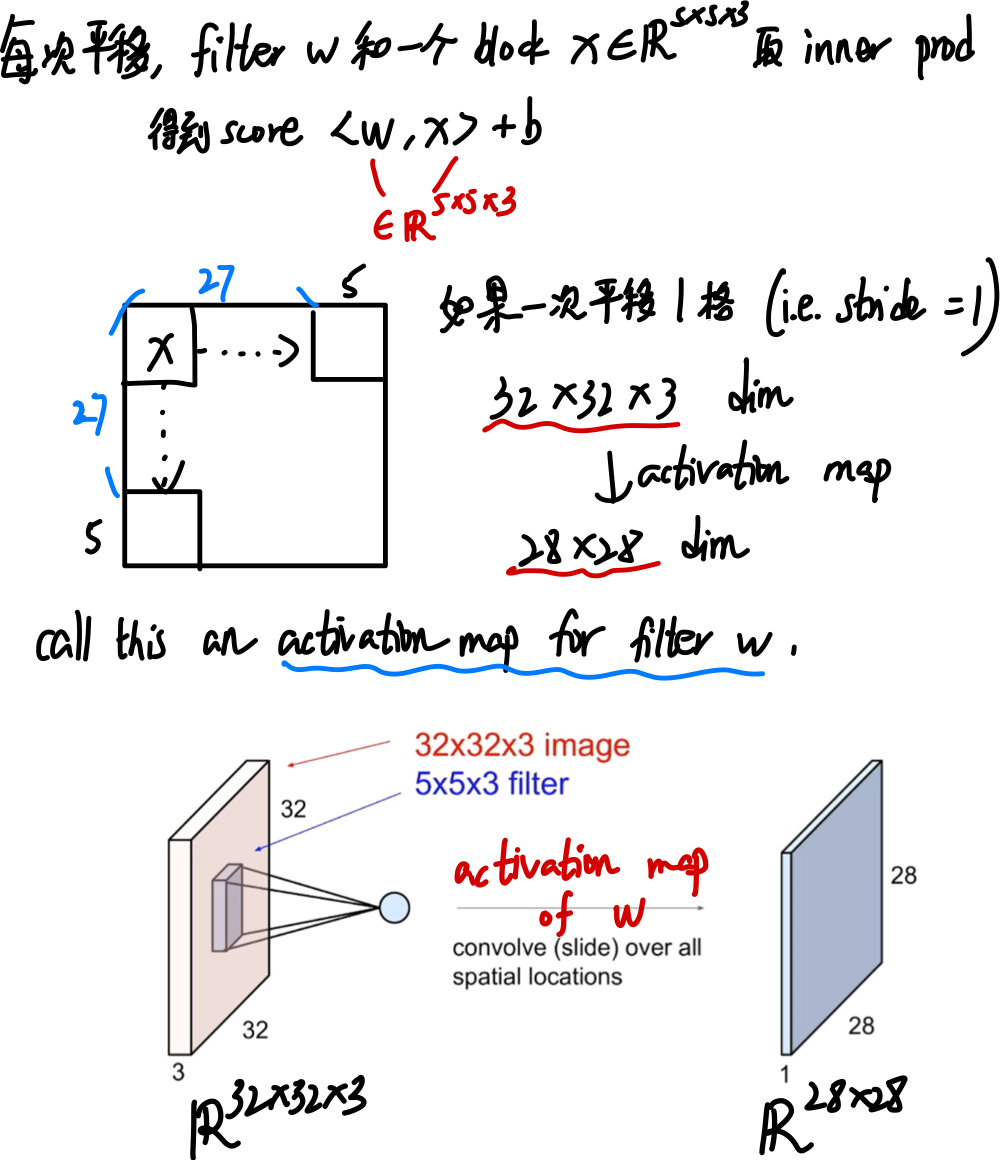 每次平移, filter w 和一个 block x∈ℝ^{5×5×3} 取 inner prod
得到 score <w, x> + b
∈ℝ^{5×5×3}
27
5
x
27
5
如果一次平移1格 (i.e. stride =1)
32×32×3 dim
↓ activation map
28×28 dim
call this an activation map for filter w.
32x32x3 image
5x5x3 filter
32
32
3
activation map
of w
convolve (slide) over all
spatial locations
28
28
1
ℝ^{32×32×3}
ℝ^{28×28}